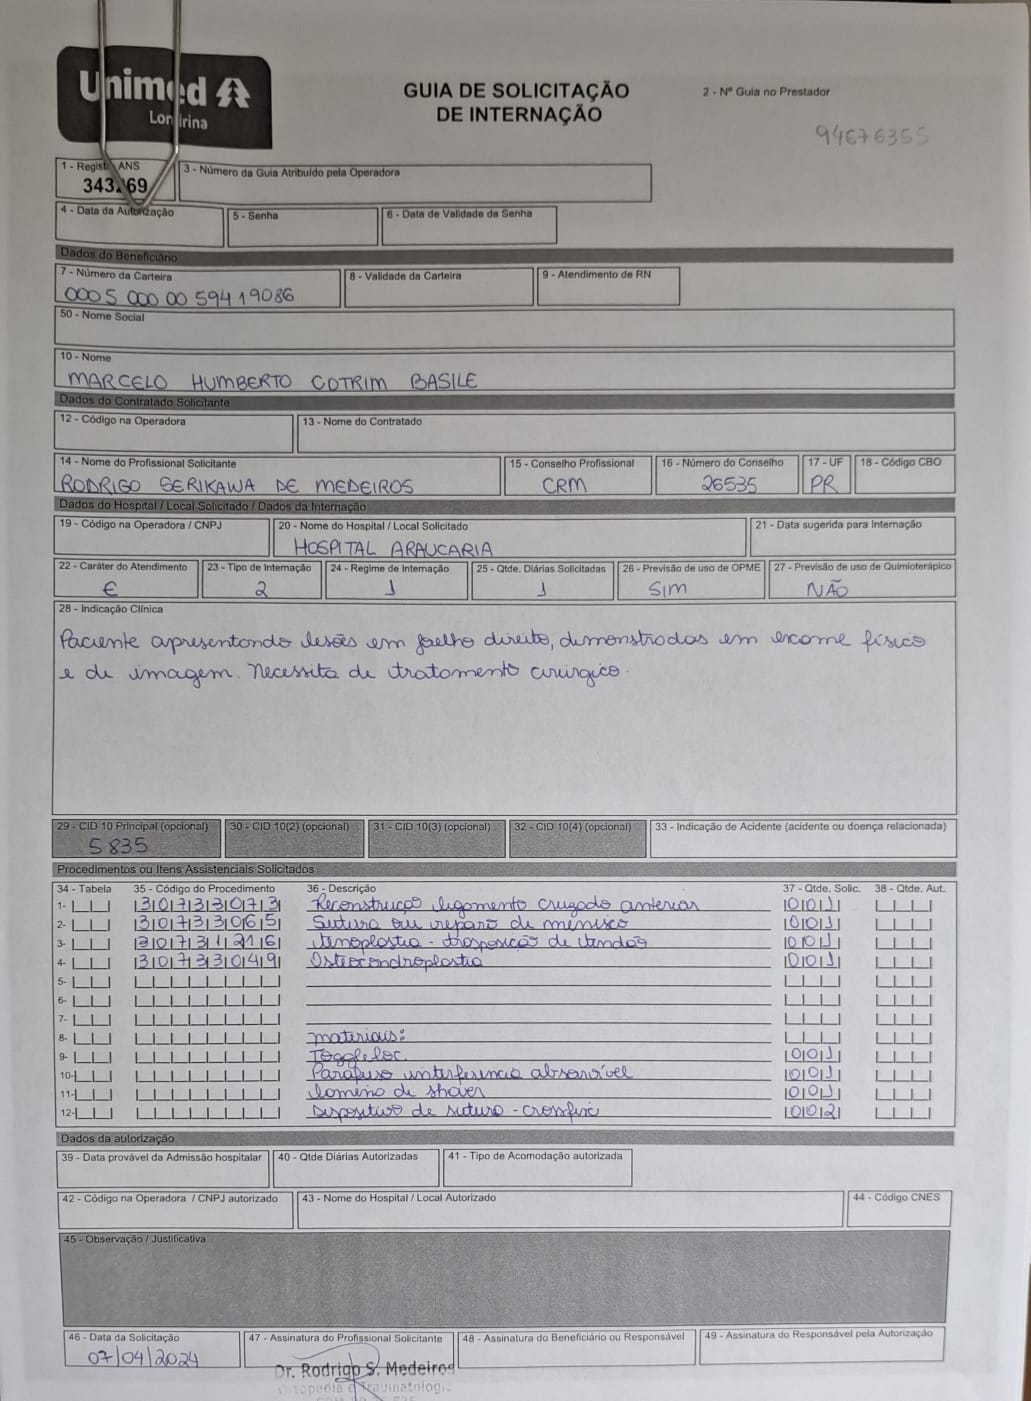 Unimed
Londrina
GUIA DE SOLICITAÇÃO
DE INTERNAÇÃO
2 - Nº Guia no Prestador
94676355
1 - Registro ANS
343269
3 - Número da Guia Atribuído pela Operadora
4 - Data da Autorização
5 - Senha
6 - Data de Validade da Senha
Dados do Beneficiário
7 - Número da Carteira
0005 000 00 59419086
8 - Validade da Carteira
9 - Atendimento de RN
50 - Nome Social
10 - Nome
MARCELO HUMBERTO COTRIM BASILE
Dados do Contratado Solicitante
12 - Código na Operadora
13 - Nome do Contratado
14 - Nome do Profissional Solicitante
RODRIGO SERIKAWA DE MEDEIROS
15 - Conselho Profissional
CRM
16 - Número do Conselho
26535
17 - UF
PR
18 - Código CBO
Dados do Hospital / Local Solicitado / Dados da Internação
19 - Código na Operadora / CNPJ
20 - Nome do Hospital / Local Solicitado
HOSPITAL ARAUCARIA
21 - Data sugerida para Internação
22 - Caráter do Atendimento
E
23 - Tipo de Internação
2
24 - Regime de Internação
1
25 - Qtde. Diárias Solicitadas
1
26 - Previsão de uso de OPME
SIM
27 - Previsão de uso de Quimioterápico
NÃO
28 - Indicação Clínica
Paciente apresentando lesões em joelho direito, demonstradas em exame físico
e de imagem. Necessita de tratamento cirúrgico.
29 - CID 10 Principal (opcional)
S835
30 - CID 10(2) (opcional)
31 - CID 10(3) (opcional)
32 - CID 10(4) (opcional)
33 - Indicação de Acidente (acidente ou doença relacionada)
Procedimentos ou Itens Assistenciais Solicitados
34 - Tabela 35 - Código do Procedimento 36 - Descrição 37 - Qtde. Solic. 38 - Qtde. Aut.
1- 30733073 Reconstrução ligamento cruzado anterior 001
2- 30733065 Sutura ou reparo de menisco 001
3- 30731216 Tenoplastia - trasposição de tendão 001
4- 30733049 Osteocondroplastia 001
5-
6-
7-
8- materiais:
9- Toggleloc. 001
10- Parafuso interferencia absorvível 001
11- lamina de shaver 001
12- Dispositivo de sutura - crossfix 002
Dados da autorização
39 - Data provável da Admissão hospitalar
40 - Qtde Diárias Autorizadas
41 - Tipo de Acomodação autorizada
42 - Código na Operadora / CNPJ autorizado
43 - Nome do Hospital / Local Autorizado
44 - Código CNES
45 - Observação / Justificativa
46 - Data da Solicitação
07/04/2024
47 - Assinatura do Profissional Solicitante
Dr. Rodrigo S. Medeiros
Ortopedia e Traumatologia
48 - Assinatura do Beneficiário ou Responsável
49 - Assinatura do Responsável pela Autorização